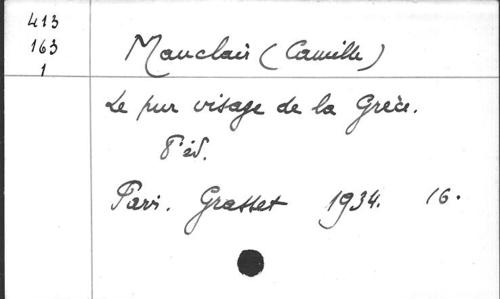 413
163
1
Mauclair (Camille)
Le pur visage de la Grèce.
8e éd.
Paris. Grasset 1934. 16.